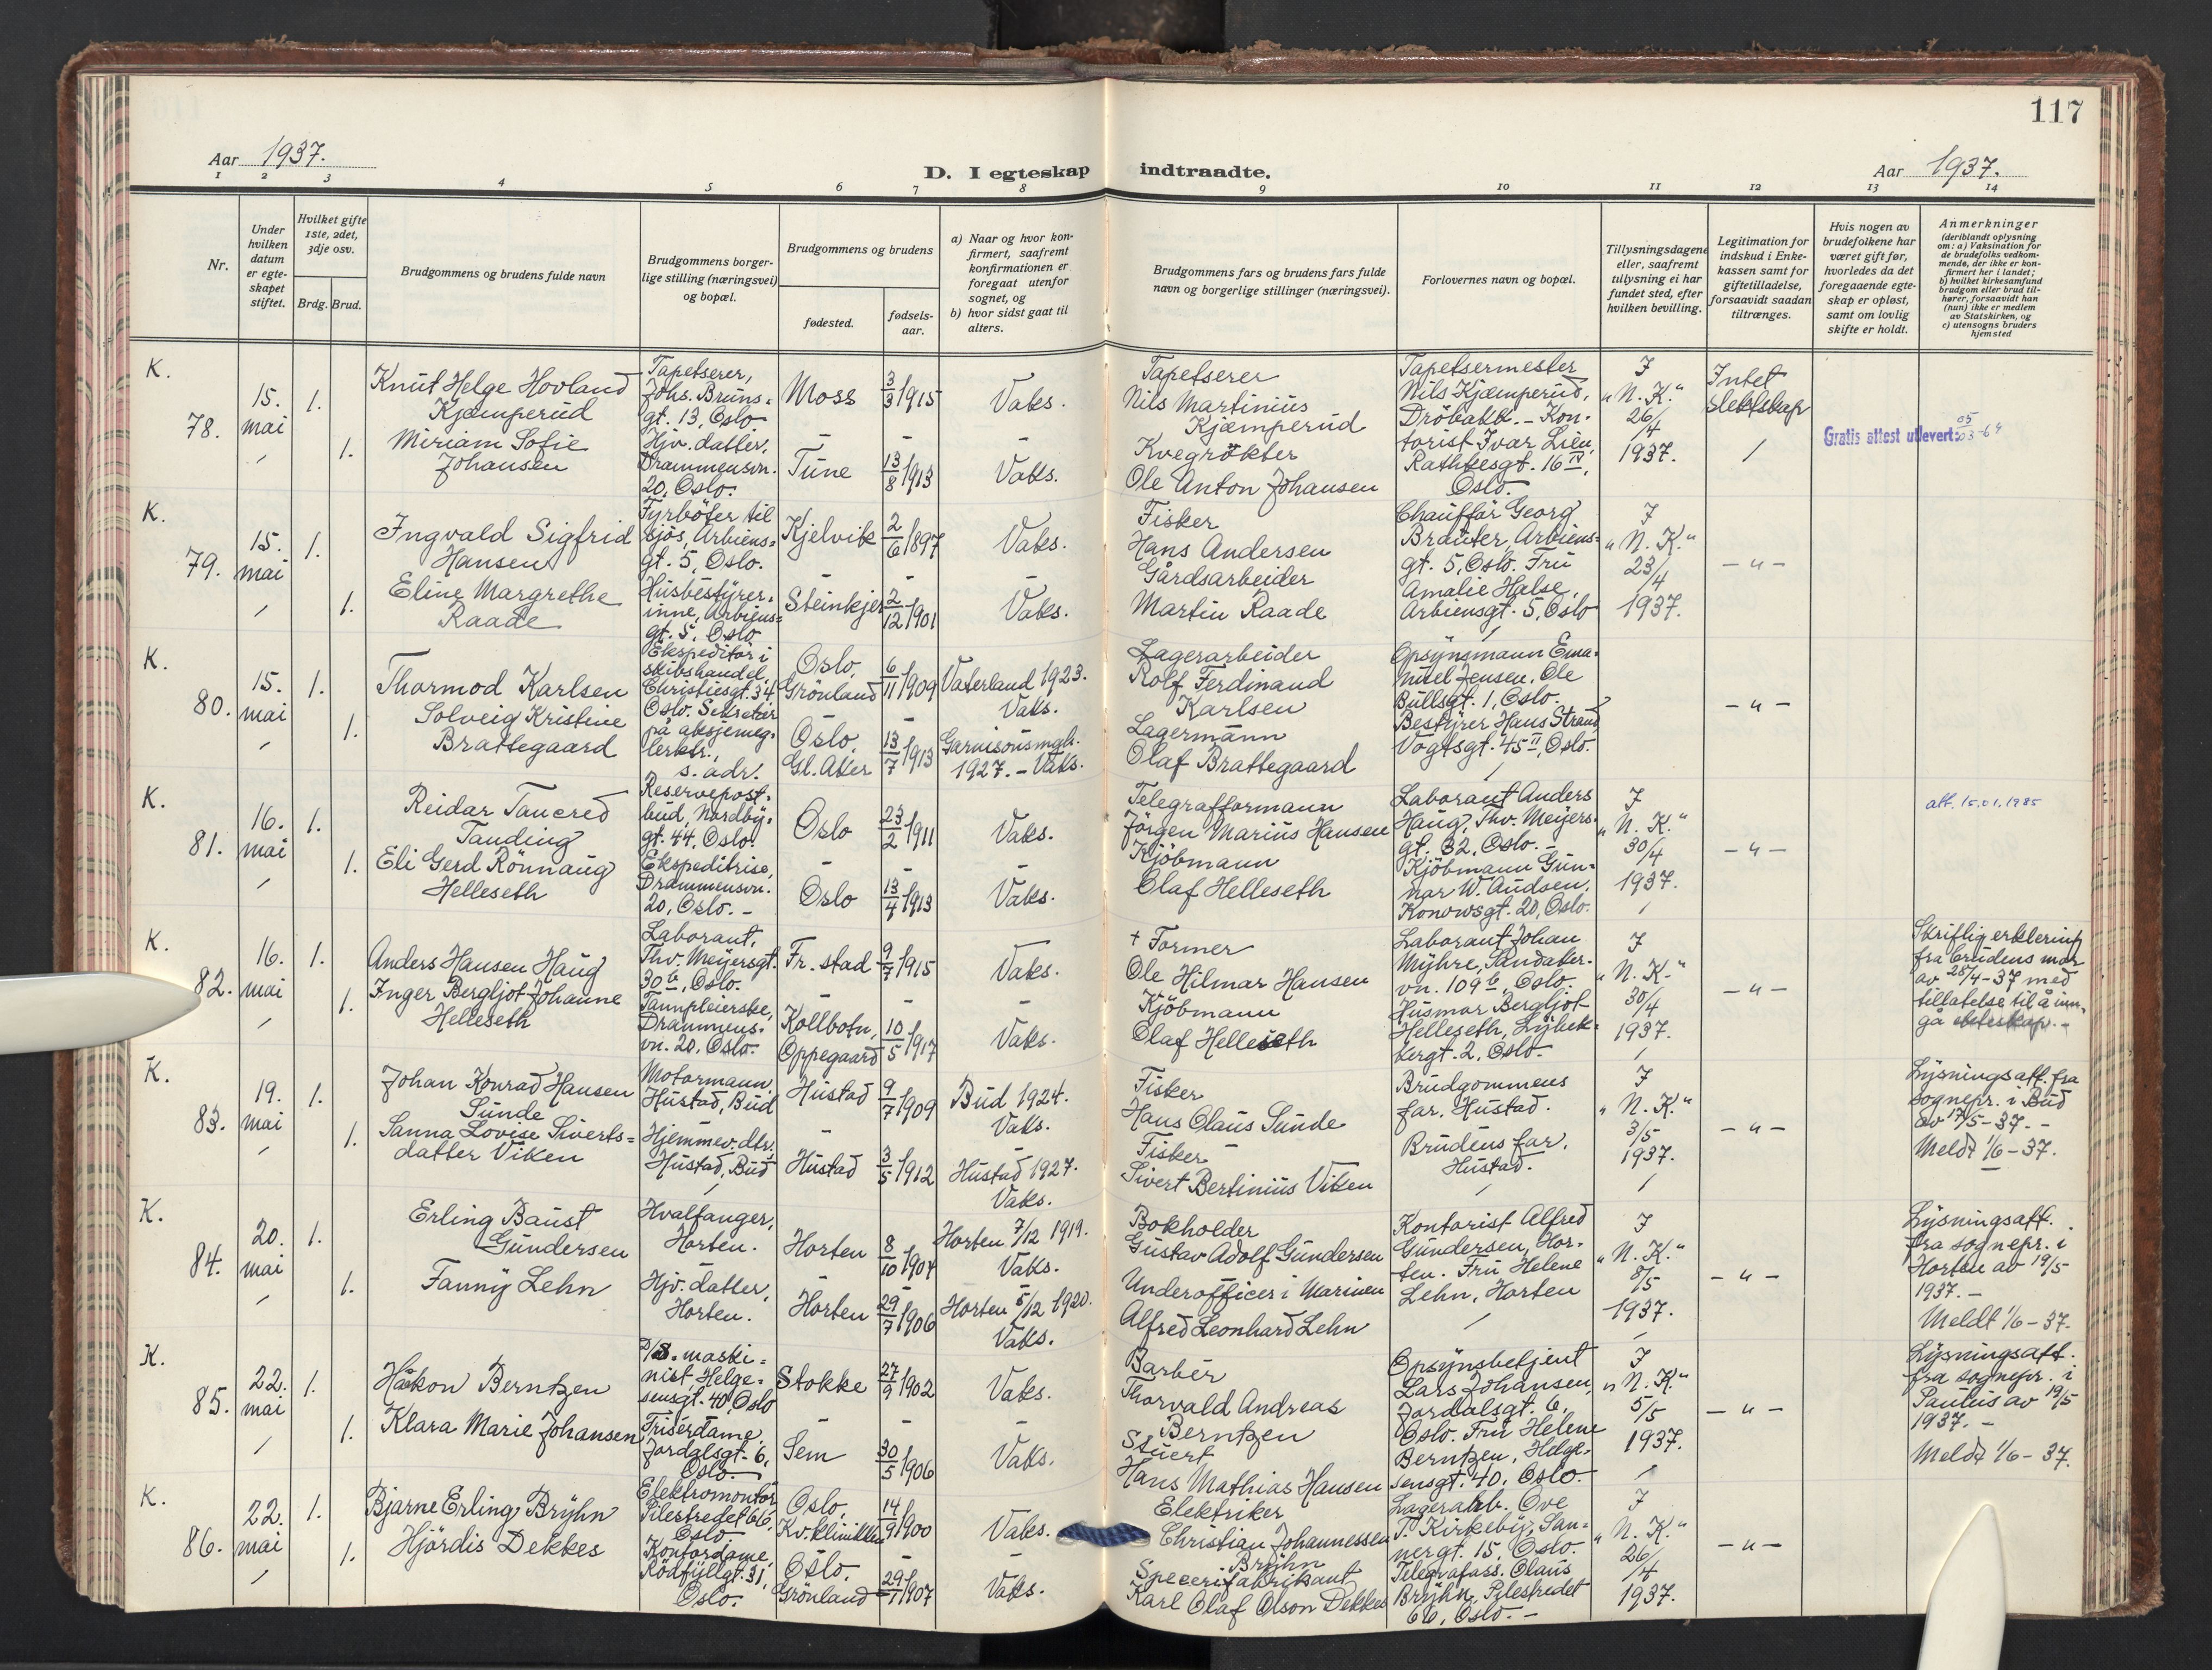 117
Aar 1937.
D. I egteskap indtraadte.
Aar 1937.
1 2 3 4 5 6 7 8 9 10 11 12 13 14
Nr.
Under hvilken datum er egteskapet stiftet.
Hvilket gifte 1ste, 2det, 3dje osv.
Brdg. Brud.
Brudgommens og brudens fulde navn
Brudgommens borgerlige stilling (næringsvei) og bopæl.
Brudgommens og brudens
fødested.
fødselsaar.
a) Naar og hvor konfirmert, saafremt konfirmationen er foregaat utenfor sognet, og
b) hvor sidst gaat til alters.
Brudgommens fars og brudens fars fulde navn og borgerlige stillinger (næringsvei).
Forlovernes navn og bopæl.
Tillysningsdagene eller, saafremt tillysning ei har fundet sted, efter hvilken bevilling.
Legitimation for indskud i Enkekassen samt for giftetilladelse, forsaavidt saadan tiltrænges.
Hvis nogen av brudefolkene har været gift før, hvorledes da det foregaaende egteskap er opløst, samt om lovlig skifte er holdt.
Anmerkninger
(deriblandt oplysning om: a) Vaksination for de brudefolks vedkommende, der ikke er konfirmert her i landet;
b) hvilket kirkesamfund brudgom eller brud tilhører, forsaavidt han (hun) ikke er medlem av Statskirken, og
c) utensogns bruders hjemsted
K.
78. 15. mai
1. Knut Helge Hovland Kjæmperud
Tapetserer, Johs. Bruns=gt. 13, Oslo
Moss 3/3 1915 Vaks.
Tapetserer Nils Martinius Kjæmperud
1. Miriam Sofie Johansen
Hjv. datter, Drammensvn. 20, Oslo.
Tune 13/8 1913 Vaks.
Kvegrökter Ole Anton Johansen
Tapetsermester Nils Kjæmperud, Dröbakk. - Kontorist Ivar Lien, Rathkesgt. 16 IV, Oslo.
I "N. K." 26/4 1937.
Intet slektskap
Gratis attest utlevert: 05/03-64
K.
79. 15. mai
1. Ingvald Sigfrid Hansen
Fyrböter til sjös, Arbiens=gt. 5, Oslo.
Kjelvik 2/6 1897 Vaks.
Fisker Hans Andersen
1. Eline Margrethe Raade
Husbestyrerinne, Arbiens=gt. 5, Oslo
Steinkjer 2/12 1901 Vaks.
Gårdsarbeider Martin Raade
Chauffør Georg Brauter, Arbiens=gt. 5, Oslo. Fru Amalie Halse, Arbiensgt. 5, Oslo
I "N. K." 23/4 1937.
- " -
K.
80. 15. mai
1. Thormod Karlsen
Ekspeditör i skibshandel, Christiesgt. 34 Oslo.
Oslo, Grönland 6/11 1909 Vaterland 1923. Vaks.
Lagerarbeider Rolf Ferdinand Karlsen
1. Solveig Kristine Brattegaard
Sekretær på aksjemeglerktr., s. adr.
Oslo, Gl. Aker 13/7 1913 Garnisonsmgh. 1927. - Vaks.
Lagermann Olaf Brattegaard
Opsynsmann Emanuel Jensen, Ole Bullsgt. 1, Oslo. Bestyrer Hans Strand, Vogtsgt. 45 II, Oslo.
- " -
K.
81. 16. mai
1. Reidar Tancred Tanding
Reservepost=bud, Nordby=gt. 44, Oslo.
Oslo 23/2 1911 Vaks.
Telegrafformann Jörgen Marius Hansen
1. Eli Gerd Rönnaug Helleseth
Ekspeditrise, Drammensvn. 20, Oslo. -
Oslo 13/4 1913 Vaks.
Kjöbmann Olaf Helleseth
Laborant Anders Haug, Thv. Meyers=gt. 32, Oslo. - Kjöbmann Gunnar W. Audsen, Konowsgt. 20, Oslo.
I "N. K." 30/4 1937.
- " -
att. 15.01.1985
K.
82. 16. mai
1. Anders Hansen Haug
Laborant, Thv. Meyersgt. 30 b, Oslo.
Fr. stad 9/7 1915 Vaks.
+ Former Ole Hilmar Hansen
1. Inger Bergljot Johanne Helleseth
Tannpleierske, Drammens=vn. 20, Oslo.
Kollbotn, Oppegaard 10/5 1917 Vaks.
Kjöbmann Olaf Helleseth
Laborant Johan Myhre, Sandaker=vn. 109 b, Oslo. Husmor Bergljot Helleseth, Lybekkergt. 2, Oslo.
I "N. K." 30/4 1937.
- " -
Skriftlig erklering fra brudens mor av 28/4-37 med tillatelse til å inngå ekteskap. -
K.
83. 19. mai
1. Johan Konrad Hansen Sunde
Motormann, Hustad, Bud
Hustad 9/7 1909 Bud 1924. Vaks.
Fisker Hans Olaus Sunde
1. Sanna Lovise Sivertsdatter Viken
Hjemmev. dtr., Hustad, Bud
Hustad 3/5 1912 Hustad 1927. Vaks.
Fisker Sivert Bertinius Viken
Brudgommens far, Hustad. Brudens far, Hustad.
I "N. K." 3/5 1937.
- " -
Lysningsatt. fra sognepr. i Bud av 17/5-37. - Meldt 1/6-37.
K.
84. 20. mai
1. Erling Baust Gundersen
Hvalfanger, Horten.
Horten 8/10 1904 Horten 7/12 1919. Vaks.
Bokholder Gustav Adolf Gundersen
1. Fanny Lehn
Hjv. datter, Horten.
Horten 29/7 1906 Horten 5/12 1920. Vaks.
Underofficer i Marinen Alfred Leonhard Lehn
Kontorist Alfred Gundersen, Horten. Fru Helene Lehn, Horten
I "N. K." 8/5 1937.
- " -
Lysningsatt. fra sognepr. i Horten av 19/5 1937. - Meldt 1/6-37.
K.
85. 22. mai
1. Håkon Berntzen
maskinist Helge=sensgt. 40, Oslo
Stokke 27/9 1902 Vaks.
Barbér Thorvald Andreas Berntzen
1. Klara Marie Johansen
Friserdame, Jordalsgt. 6, Oslo.
Sem 30/5 1906 Vaks.
Stuert Hans Mathias Hansen
Opsynsbetjent Lars Johansen, Jordalsgt. 6, Oslo. Fru Helene Berntzen, Helgesensgt. 40, Oslo.
I "N. K." 5/5 1937.
- " -
Lysningsatt. fra sognepr. i Paulus av 19/5 1937. - Meldt 1/6-37.
K.
86. 22. mai
1. Bjarne Erling Bryhn
Elektromontör Pilestredet 66, Oslo
Oslo, Kv. klinikken 14/9 1900 Vaks.
Elektriker Christian Johannessen Bryhn
1. Hjördis Dekkes
Kontordame, Rödfyllgt. 31, Oslo.
Oslo, Grönland 29/1 1907 Vaks.
Specerifabrikant Karl Olaf Olson Dekkes
Lagerarb. Ove T. Kirkeby, Sannergt. 15, Oslo. Telegrafass. Olaus Bryhn, Pilestredet 66, Oslo. -
I "N. K." 26/4 1937.
- " -